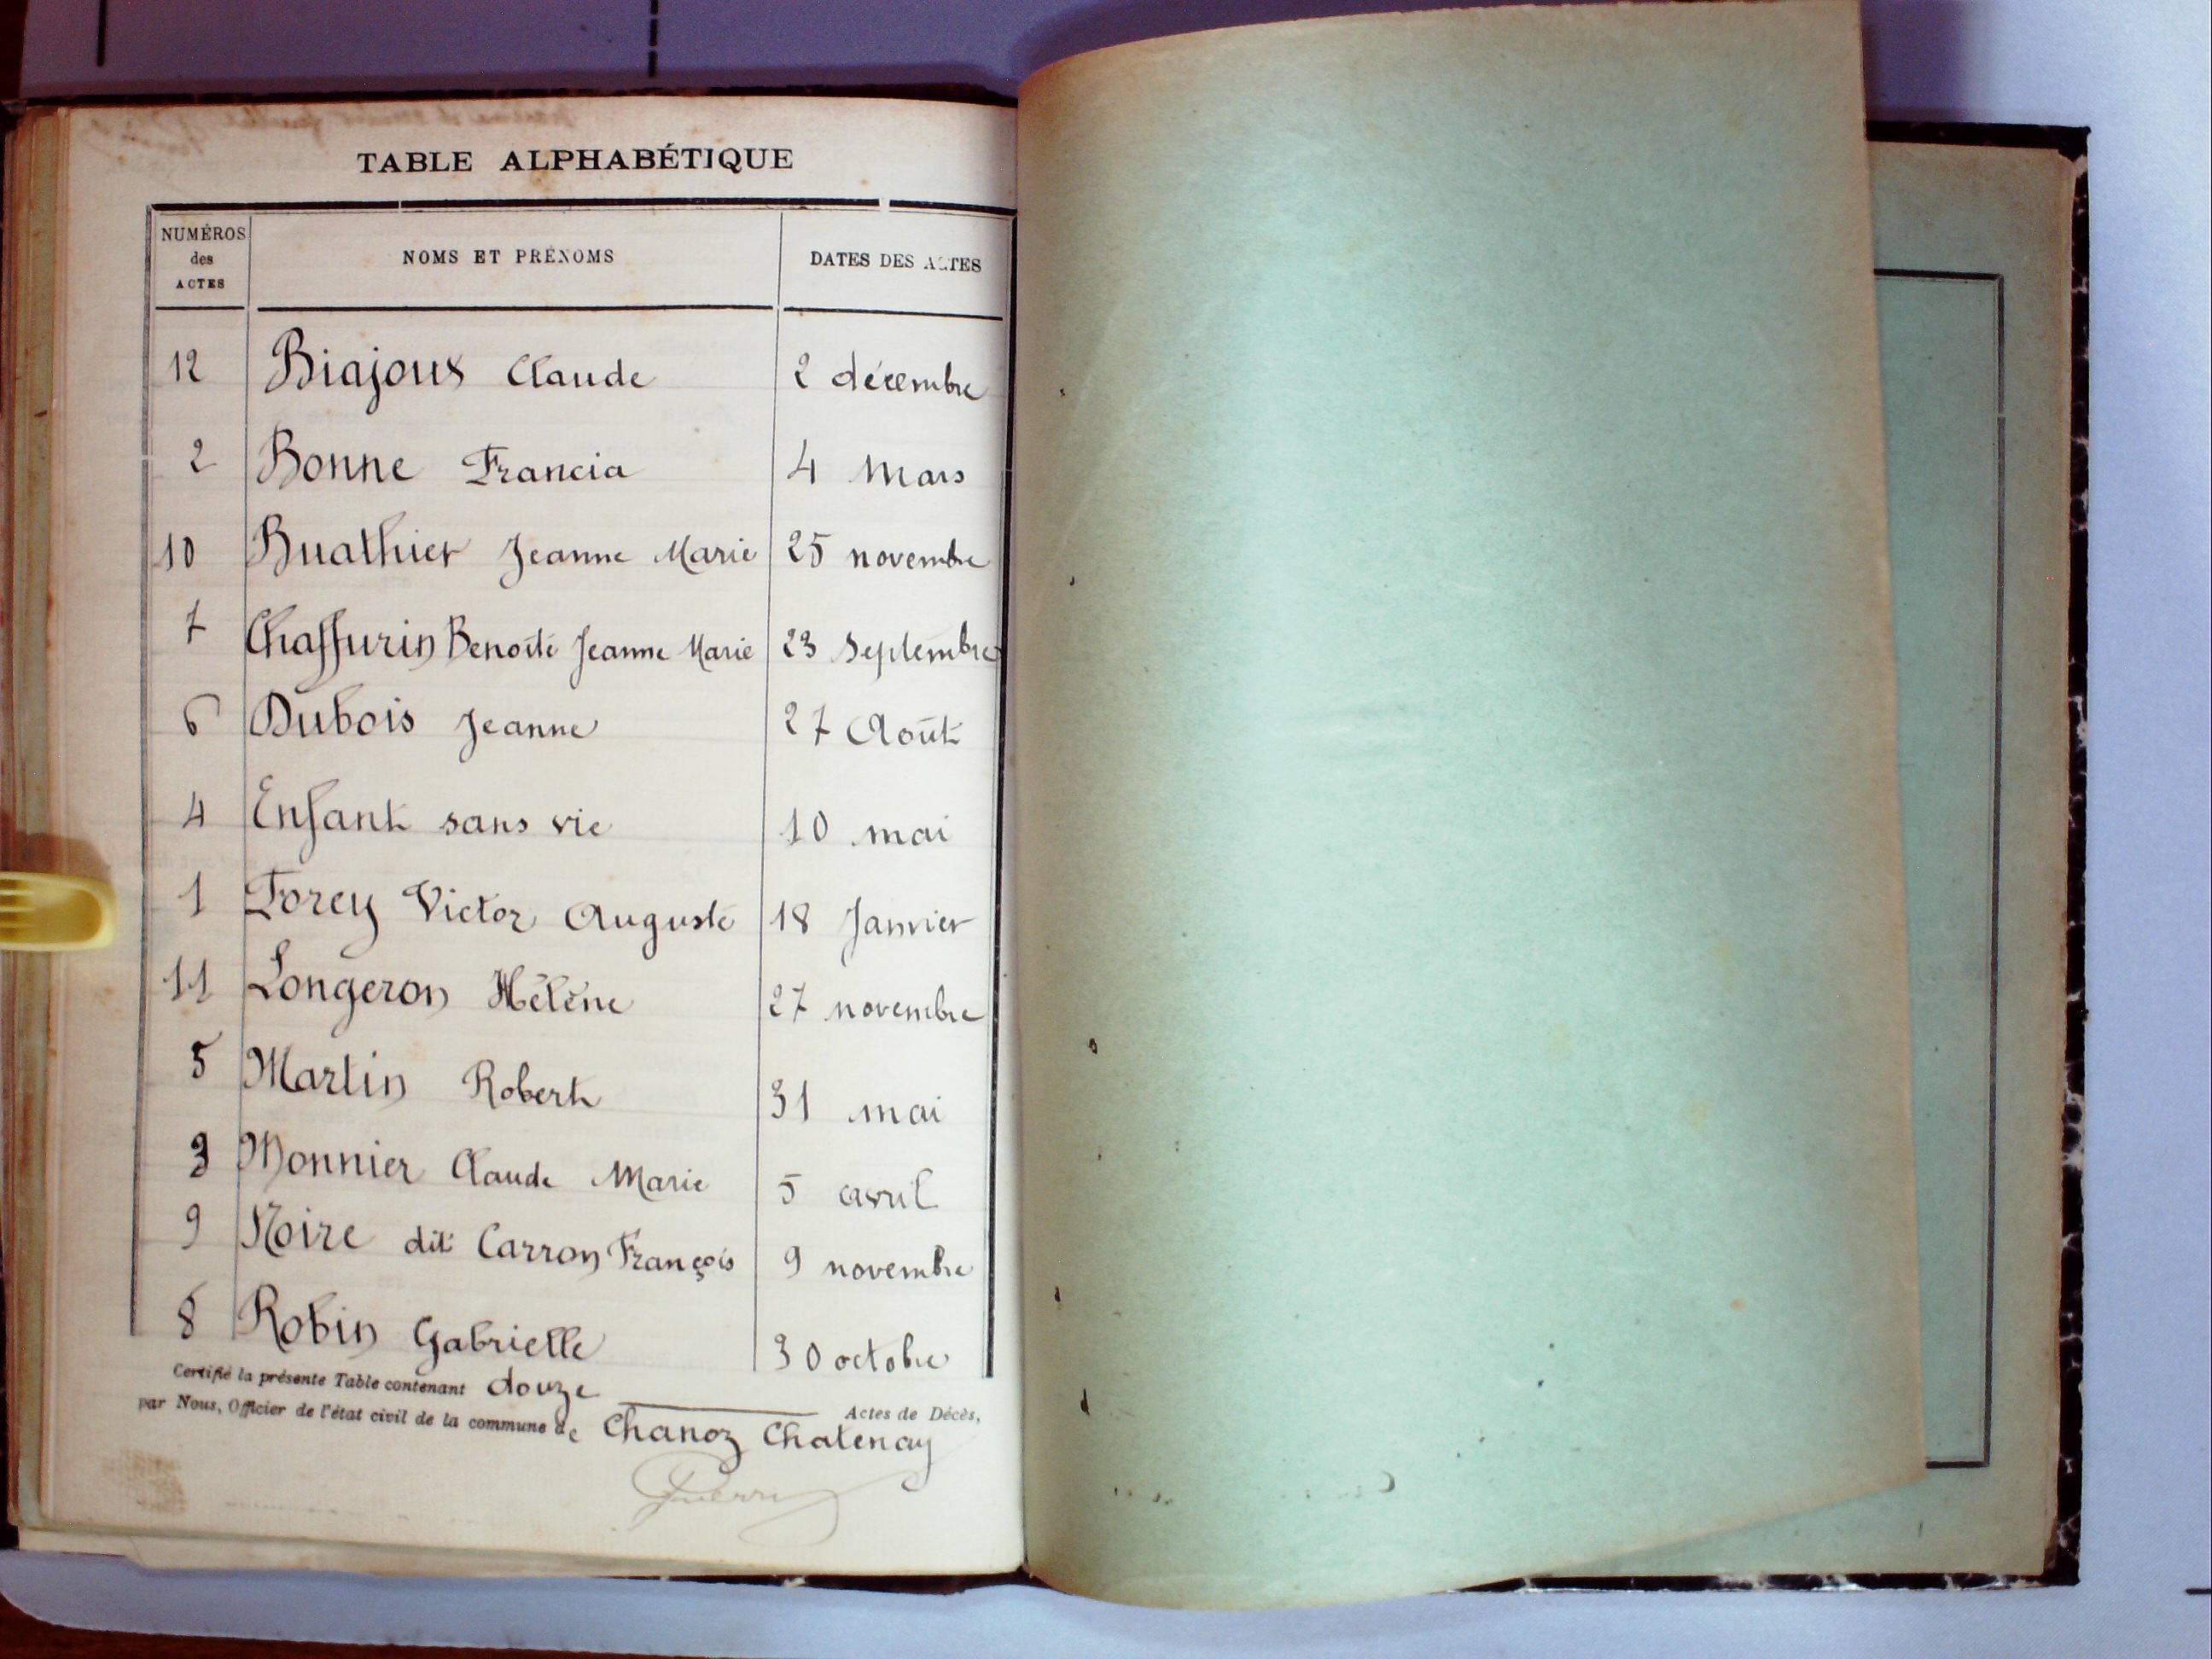 TABLE ALPHABÉTIQUE
NUMÉROS des ACTES NOMS ET PRÉNOMS DATES DES ACTES
12 Biajoux Claude 2 décembre
2 Bonne Francia 4 Mars
10 Buathier Jeanne Marie 25 novembre
7 Chaffurin Benoite Jeanne Marie 23 Septembre
6 Dubois Jeanne 27 Août
4 Enfant sans vie 10 mai
1 Forey Victor Auguste 18 Janvier
11 Longeron Hélène 27 novembre
5 Martin Robert 31 mai
3 Monnier Claude Marie 5 avril
9 Noire dit Carron François 9 novembre
8 Robin Gabrielle 30 octobre
Certifié la présente Table contenant douze Actes de Décès,
par Nous, Officier de l'état civil de la commune de Chanoz Chatenay